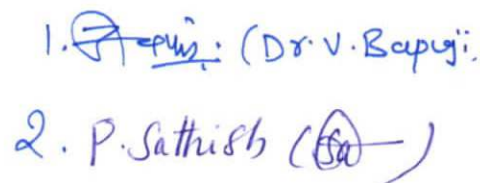 1. (Dr. V. Bapuji.
2. P. Sathish (Sa)